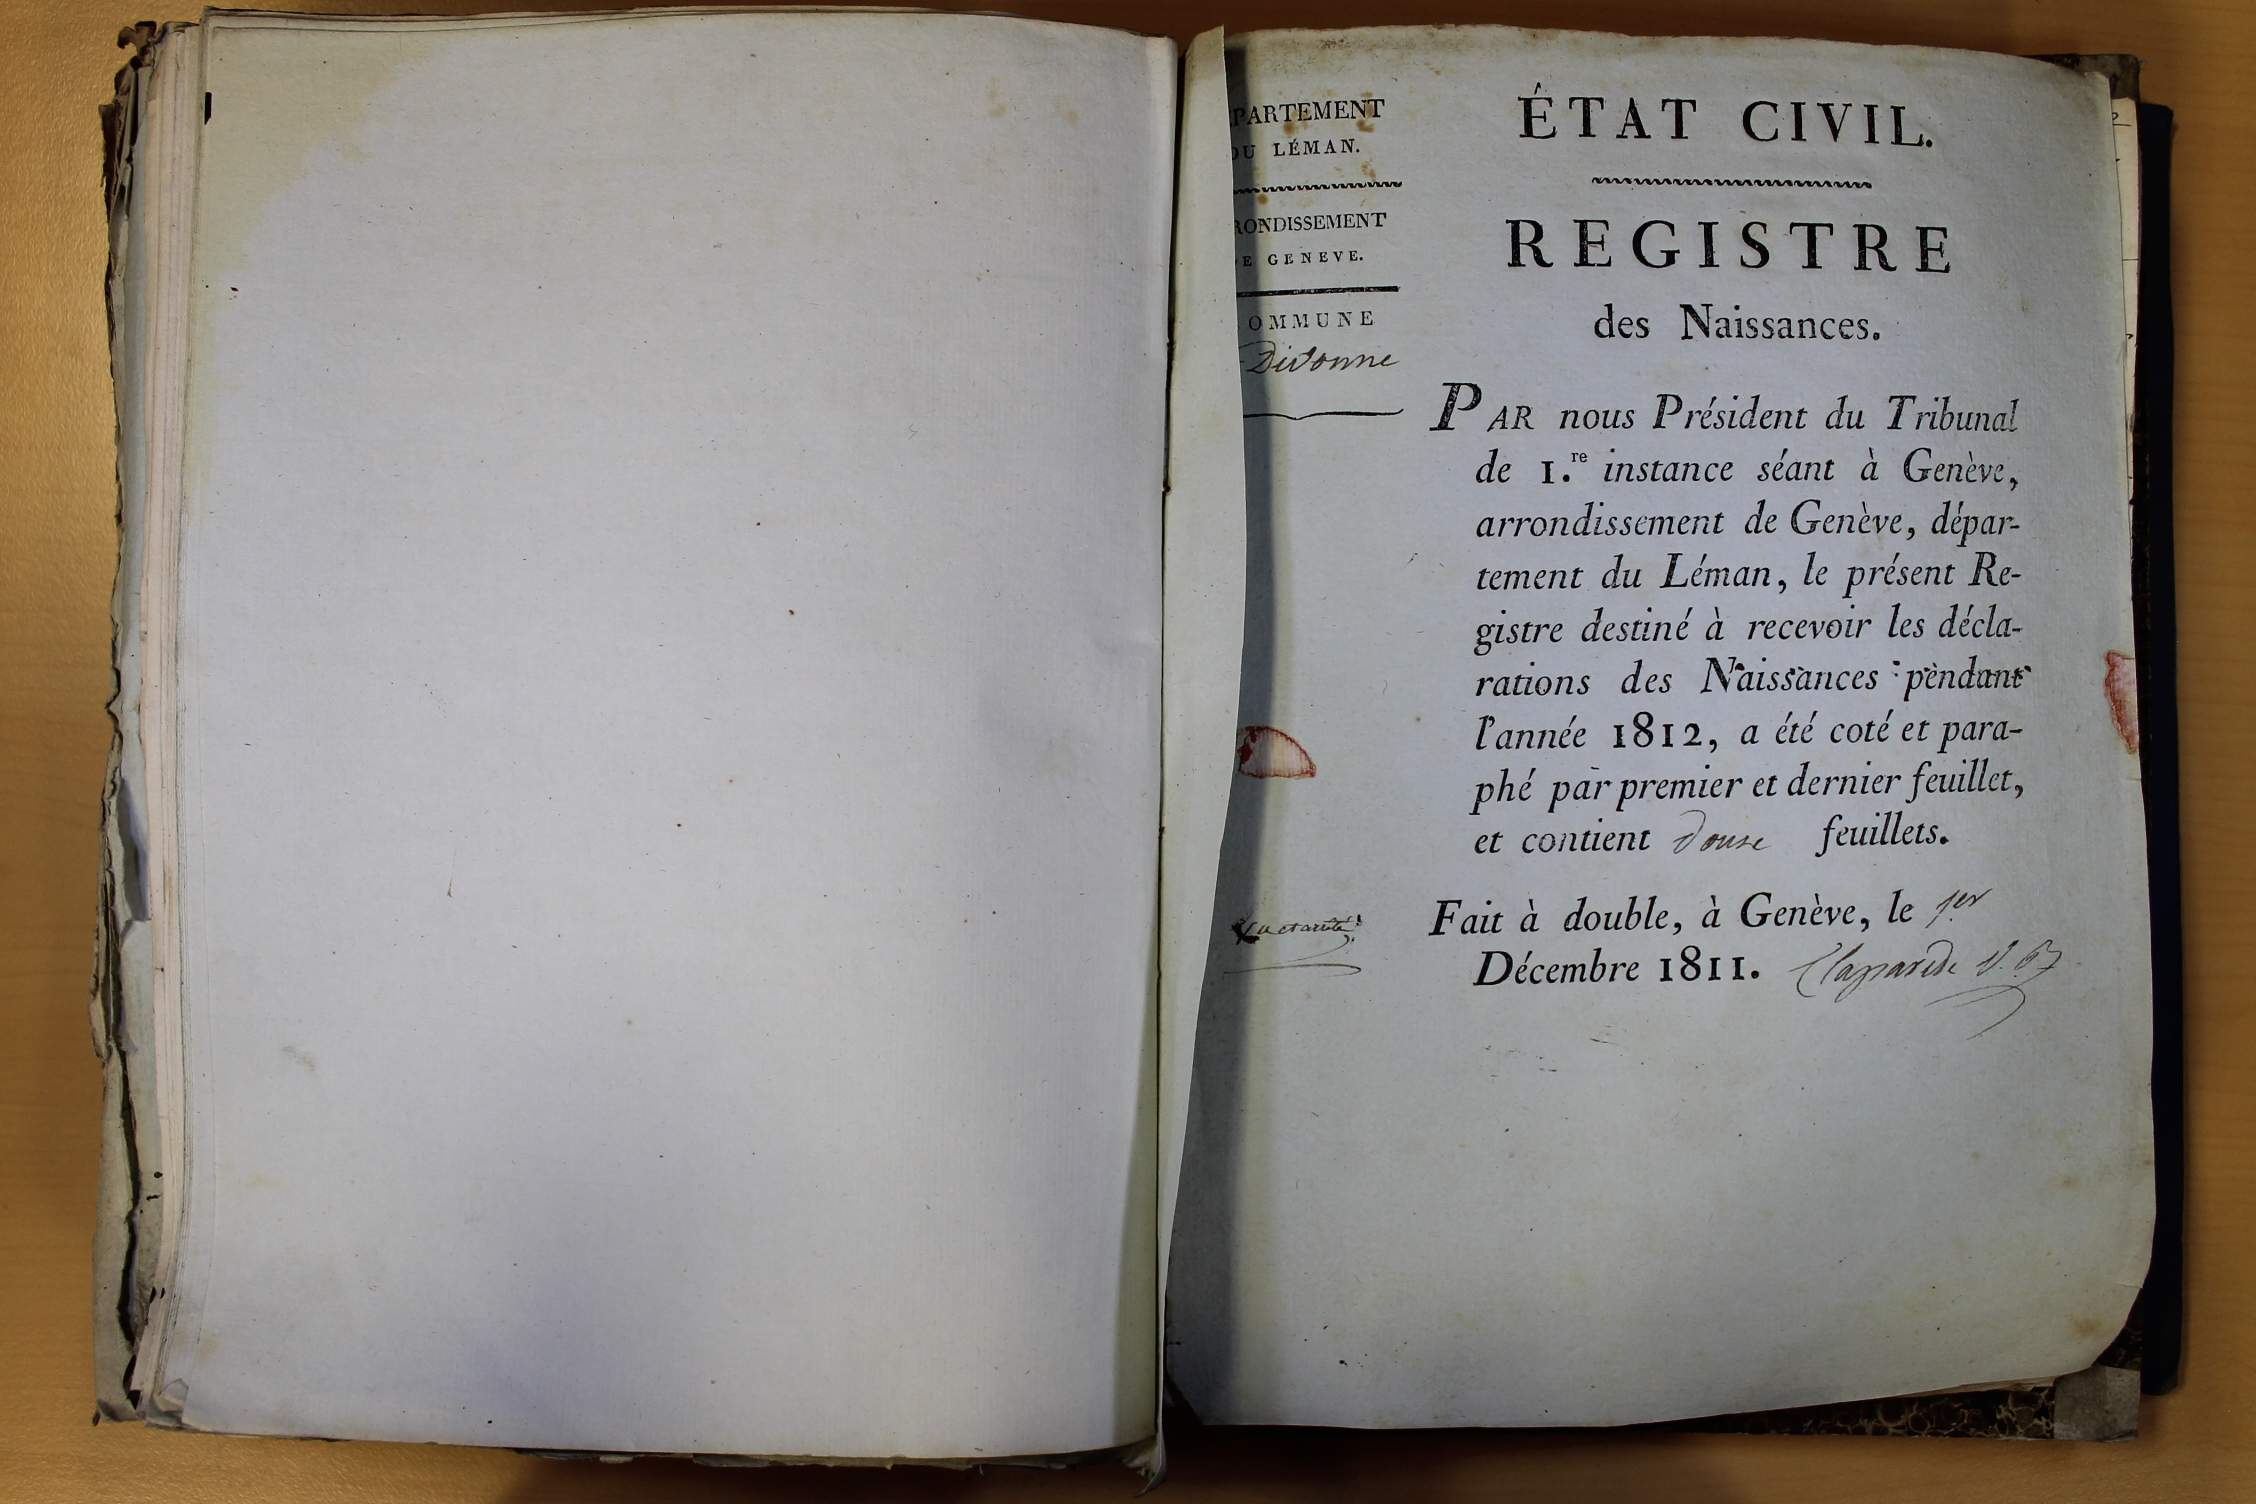 PARTEMENT
DU LÉMAN.
RONDISSEMENT
E GENEVE.
OMMUNE
Divonne
ÉTAT CIVIL.
REGISTRE
des Naissances.
PAR nous Président du Tribunal
de 1.re instance séant à Genève,
arrondissement de Genève, dépar-
tement du Léman, le présent Re-
gistre destiné à recevoir les décla-
rations des Naissances pendant
l'année 1812, a été coté et para-
phé par premier et dernier feuillet,
et contient douze feuillets.
Fait à double, à Genève, le 1er
Décembre 1811. Claparède